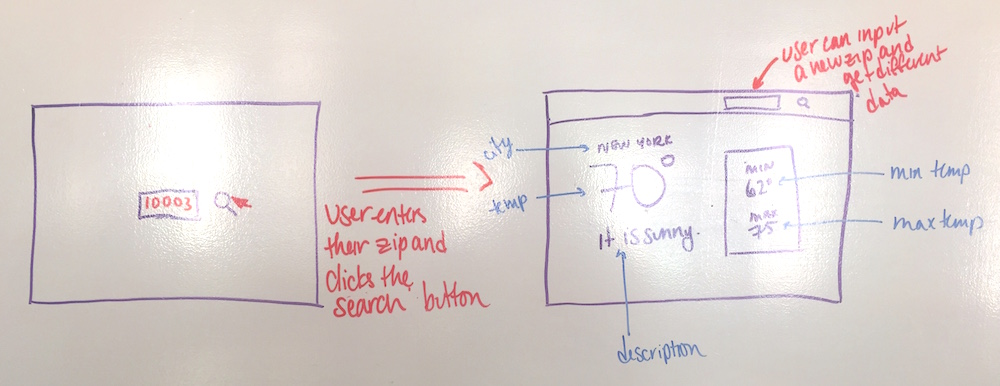 10003
User enters
their zip and
clicks the
search button
user can input
a new zip and
get different
data
city
NEW YORK
temp
70°
It is sunny.
description
MIN
62°
max
75
min temp
max temp